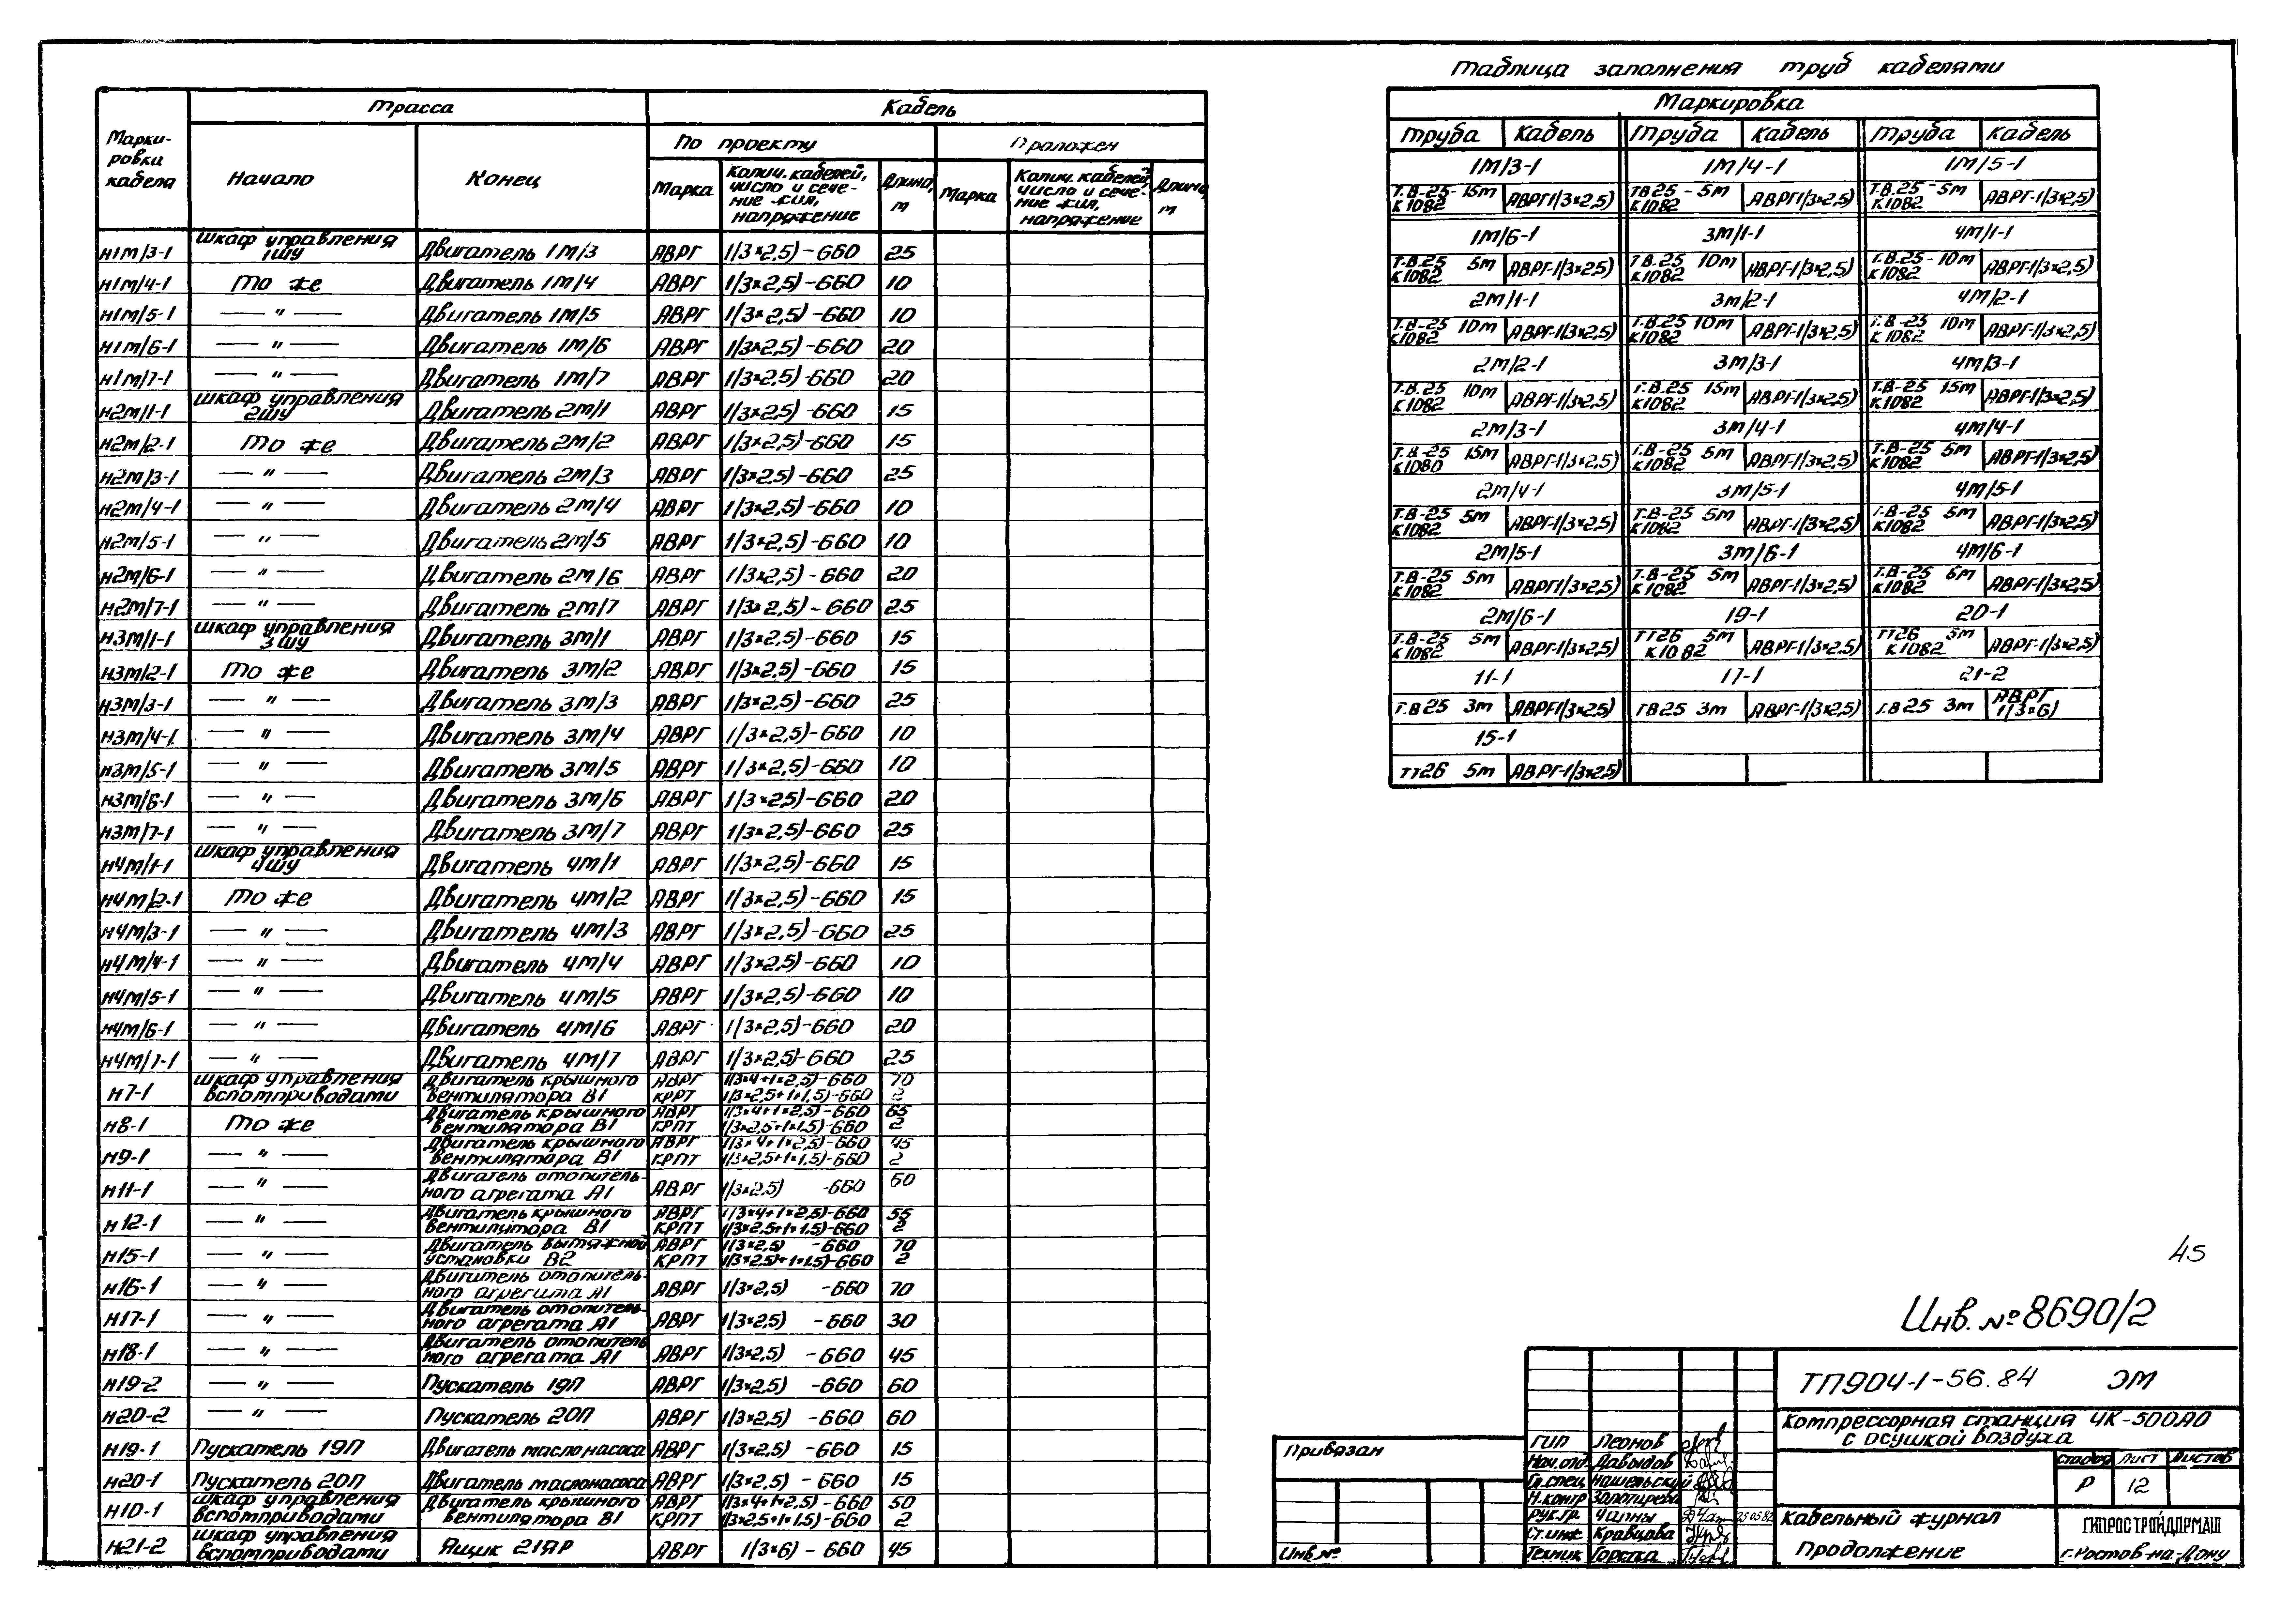 Трасса Кабель
Марки-ровка кабеля Начало Конец По проекту Проложен
Марка Колич. кабелей, число и сече-ние жил, напряжение Длина, м Марка Колич. кабелей, число и сече-ние жил, напряжение Длина, м
н1М/3-1 Шкаф управления 1ШУ Двигатель 1М/3 АВРГ 1(3×2,5)-660 25
н1М/4-1 То же Двигатель 1М/4 АВРГ 1(3×2,5)-660 10
н1М/5-1 — " — Двигатель 1М/5 АВРГ 1(3×2,5)-660 10
н1М/6-1 — " — Двигатель 1М/6 АВРГ 1(3×2,5)-660 20
н1М/7-1 — " — Двигатель 1М/7 АВРГ 1(3×2,5)-660 20
н2М/1-1 Шкаф управления 2ШУ Двигатель 2М/1 АВРГ 1(3×2,5)-660 15
н2М/2-1 То же Двигатель 2М/2 АВРГ 1(3×2,5)-660 15
н2М/3-1 — " — Двигатель 2М/3 АВРГ 1(3×2,5)-660 25
н2М/4-1 — " — Двигатель 2М/4 АВРГ 1(3×2,5)-660 10
н2М/5-1 — " — Двигатель 2М/5 АВРГ 1(3×2,5)-660 10
н2М/6-1 — " — Двигатель 2М/6 АВРГ 1(3×2,5)-660 20
н2М/7-1 — " — Двигатель 2М/7 АВРГ 1(3×2,5)-660 25
н3М/1-1 Шкаф управления 3ШУ Двигатель 3М/1 АВРГ 1(3×2,5)-660 15
н3М/2-1 То же Двигатель 3М/2 АВРГ 1(3×2,5)-660 15
н3М/3-1 — " — Двигатель 3М/3 АВРГ 1(3×2,5)-660 25
н3М/4-1 — " — Двигатель 3М/4 АВРГ 1(3×2,5)-660 10
н3М/5-1 — " — Двигатель 3М/5 АВРГ 1(3×2,5)-660 10
н3М/6-1 — " — Двигатель 3М/6 АВРГ 1(3×2,5)-660 20
н3М/7-1 — " — Двигатель 3М/7 АВРГ 1(3×2,5)-660 25
н4М/1-1 Шкаф управления 4ШУ Двигатель 4М/1 АВРГ 1(3×2,5)-660 15
н4М/2-1 То же Двигатель 4М/2 АВРГ 1(3×2,5)-660 15
н4М/3-1 — " — Двигатель 4М/3 АВРГ 1(3×2,5)-660 25
н4М/4-1 — " — Двигатель 4М/4 АВРГ 1(3×2,5)-660 10
н4М/5-1 — " — Двигатель 4М/5 АВРГ 1(3×2,5)-660 10
н4М/6-1 — " — Двигатель 4М/6 АВРГ 1(3×2,5)-660 20
н4М/7-1 — " — Двигатель 4М/7 АВРГ 1(3×2,5)-660 25
н7-1 Шкаф управления Двигатель крышного АВРГ 1(3×4+1×2,5)-660 70
вспомприводами вентилятора В1 КРПТ 1(3×2,5+1×1,5)-660 2
н8-1 То же Двигатель крышного АВРГ 1(3×4+1×2,5)-660 65
вентилятора В1 КРПТ 1(3×2,5+1×1,5)-660 2
н9-1 — " — Двигатель крышного АВРГ 1(3×4+1×2,5)-660 45
вентилятора В1 КРПТ 1(3×2,5+1×1,5)-660 2
н11-1 — " — Двигатель отопитель-
ного агрегата А1 АВРГ 1(3×2,5) -660 60
н12-1 — " — Двигатель крышного АВРГ 1(3×4+1×2,5)-660 55
вентилятора В1 КРПТ 1(3×2,5+1×1,5)-660 2
н15-1 — " — Двигатель вытяжной АВРГ 1(3×2,5) -660 70
установки В2 КРПТ 1(3×2,5)+1×1,5)-660 2
н16-1 — " — Двигатель отопитель-
ного агрегата А1 АВРГ 1(3×2,5) -660 70
н17-1 — " — Двигатель отопитель-
ного агрегата А1 АВРГ 1(3×2,5) -660 30
н18-1 — " — Двигатель отопитель
ного агрегата А1 АВРГ 1(3×2,5) -660 45
н19-2 — " — Пускатель 19П АВРГ 1(3×2,5) -660 60
н20-2 — " — Пускатель 20П АВРГ 1(3×2,5) -660 60
н19-1 Пускатель 19П Двигатель маслонасоса АВРГ 1(3×2,5) -660 15
н20-1 Пускатель 20П Двигатель маслонасоса АВРГ 1(3×2,5) -660 15
н10-1 Шкаф управления Двигатель крышного АВРГ 1(3×4+1×2,5)-660 50
вспомприводами вентилятора В1 КРПТ 1(3×2,5+1×1,5)-660 2
н21-2 Шкаф управления вспомприводами Ящик 21ЯР АВРГ 1(3×6)-660 45
Таблица заполнения труб кабелями
Маркировка
Труба Кабель Труба Кабель Труба Кабель
1М/3-1 1М/4-1 1М/5-1
Т.В-25-15м К1082 АВРГ1(3×2,5) ТВ25-5м К1082 АВРГ1(3×2,5) Т.В.25-5м К1082 АВРГ-1(3×2,5)
1М/6-1 3М/1-1 4М/1-1
Т.В.25 5м К1082 АВРГ-1(3×2,5) ТВ.25 10м К1082 АВРГ-1(3×2,5) Т.В.25-10м К1082 АВРГ-1(3×2,5)
2М/1-1 3М/2-1 4М/2-1
Т.В-25 10м К1082 АВРГ-1(3×2,5) Т.В.25 10м К1082 АВРГ-1(3×2,5) Т.В-25 10м К1082 АВРГ-1(3×2,5)
2М/2-1 3М/3-1 4М/3-1
Т.В.25 10м К1082 АВРГ-1(3×2,5) Т.В.25 15м К1082 АВРГ-1(3×2,5) Т.В-25 15м К1082 АВРГ-1(3×2,5)
2М/3-1 3М/4-1 4М/4-1
Т.В-25 15м К1080 АВРГ-1(3×2,5) Т.В-25 5м К1082 АВРГ-1(3×2,5) Т.В-25 5м К1082 АВРГ-1(3×2,5)
2М/4-1 3М/5-1 4М/5-1
Т.В-25 5м К1082 АВРГ-1(3×2,5) Т.В-25 5м К1082 АВРГ-1(3×2,5) Т.В-25 5м К1082 АВРГ-1(3×2,5)
2М/5-1 3М/6-1 4М/6-1
Т.В-25 5м К1082 АВРГ1(3×2,5) Т.В-25 5м К1082 АВРГ-1(3×2,5) Т.В-25 5м К1082 АВРГ-1(3×2,5)
2М/6-1 19-1 20-1
Т.В-25 5м К1082 АВРГ-1(3×2,5) ТТ26 5м К1082 АВРГ-1(3×2,5) ТТ26 5м К1082 АВРГ-1(3×2,5)
11-1 17-1 21-2
Т.В25 3м АВРГ1(3×2,5) ТВ25 3м АВРГ-1(3×2,5) Т.В25 3м АВРГ 1(3×6)
15-1
ТТ26 5м АВРГ-1(3×2,5)
45
Инв. №8690/2
ТП904-1-56.84 ЭМ
Компрессорная станция 4К-500А0
с осушкой воздуха
Стадия Лист Листов
Р 12
Кабельный журнал
Продолжение
ГИПРОСТРОЙДОРМАШ
г. Ростов-на-Дону
Привязан
Инв №
ГИП Леонов
Нач.отд. Давыдов
Гл.спец Нашельский
Н.контр Золотарева
Рук.гр. Чапны
Ст.инж Кравцова
Техник Горстка